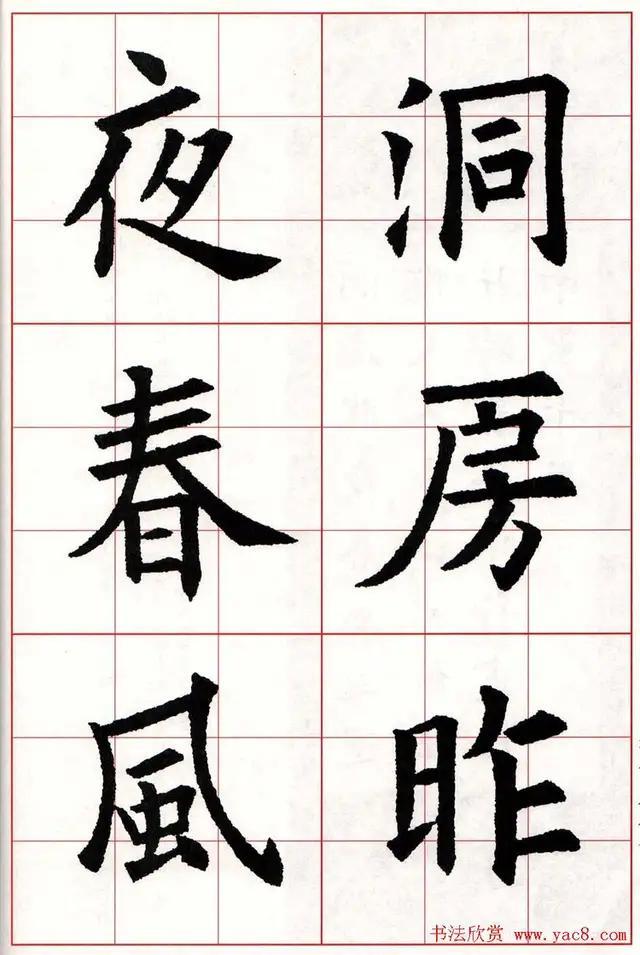 洞房昨
夜春風
书法欣赏 www.yac8.com